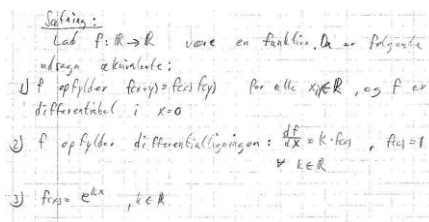 Sætning:
Lad f: ℝ → ℝ være en funktion. Da er følgende
udsagn ækvivalente:
1) f opfylder f(x+y)=f(x)f(y) for alle x,y∈ℝ, og f er
differentiabel i x=0
2) f opfylder differentialligningen: df/dx = k·f(x), f(0)=1
∀ k∈ℝ
3) f(x)= e^{kx}, k∈ℝ